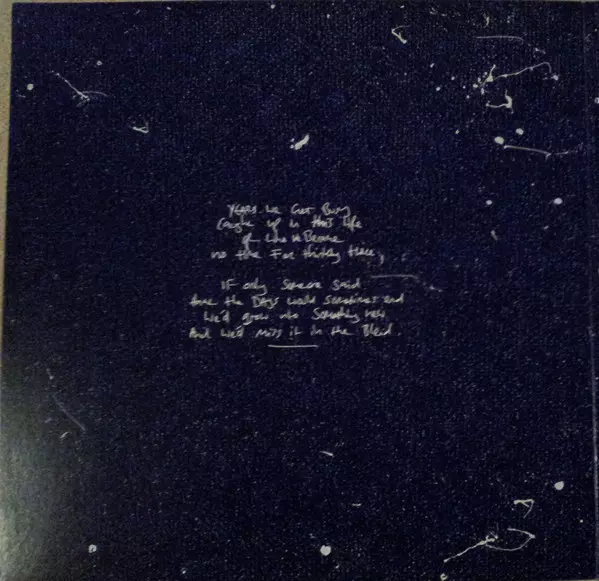 Years we Get Busy
Caught up in that life
of who we Became
no time For thinking
IF only Someone said
the Days would sometimes end
We'd grow into Something new
And we'd Miss it in the Blend.